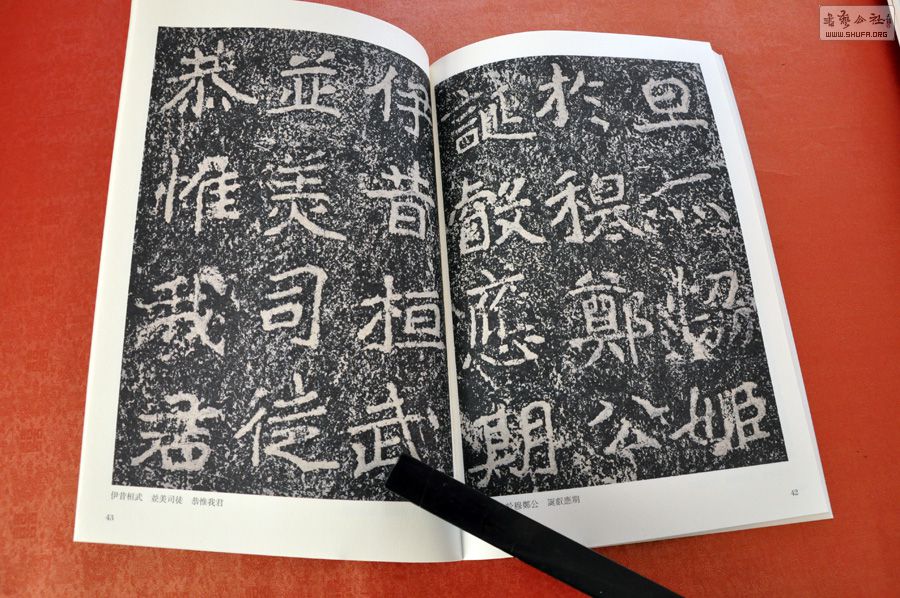 旦亦協姬
於穆鄭公
誕叡應期
伊昔桓武
並美司徒
恭惟我君
穆鄭公　誕叡應期
42
伊昔桓武　並美司徒　恭惟我君
43
書藝公社
WWW.SHUFA.ORG